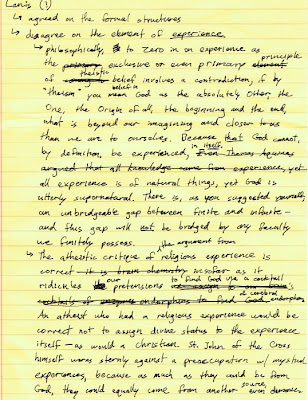 Lewis (?)
↳ agreed on the formal structures
↳ disagree on the element of experience.
↳ philosophically, to zero in on experience as
the exclusive or even primary principle
of theistic belief involves a contradiction, if by
"theism" you mean belief in God as the absolutely Other, the
One, the Origin of all, the beginning and the end,
what is beyond our imagining and closer to us
than we are to ourselves. Because that God cannot,
by definition, be experienced, in itself, Even Thomas Aquinas
argued that all knowledge came from experience, yet
all experience is of natural things, yet God is
utterly supernatural. There is, as you suggested yourself,
an unbridgeable gap between finite and infinite—
and this gap will not be bridged by any faculty
we finitely possess.
↳ The atheistic critique of the argument from religious experience is
correct it is brain chemistry insofar as it
ridicules our pretensions to find God via a cocktail
of cerebral endorphins to find God, endorphins.
An atheist who had a religious experience would be
correct not to assign divine status to the experience
itself — as would a Christian. St. John of the Cross
himself warns sternly against a preoccupation w/ mystical
experiences, because as much as they could be from
God, they could equally come from another source, even demonic.